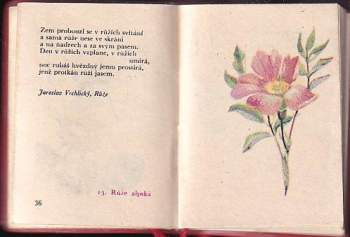 Zem probouzí se v růžích svítání
a sama růže nese ve skráni
a na ňadrech a za svým pasem.
Den v růžích vzplane, v růžích
umírá,
noc rubáš hvězdný jemu prostírá,
jenž protkán růží jasem.
Jaroslav Vrchlický, Růže
13. Růže alpská
36